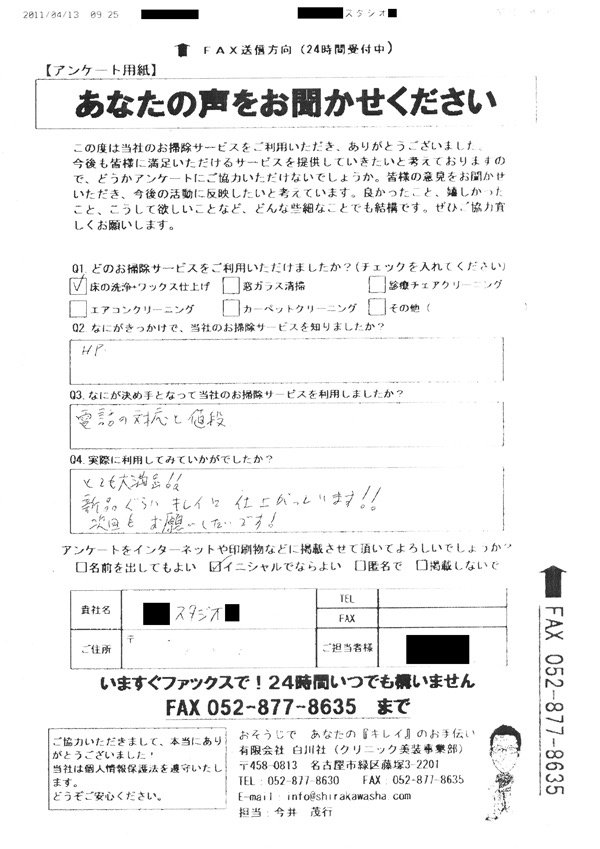 2011/04/13 09:25 スタジオ
FAX送信方向(24時間受付中)
【アンケート用紙】
あなたの声をお聞かせください
この度は当社のお掃除サービスをご利用いただき、ありがとうございました。
今後も皆様に満足いただけるサービスを提供していきたいと考えておりますの
で、どうかアンケートにご協力いただけないでしょうか。皆様の意見をお聞かせ
いただき、今後の活動に反映したいと考えています。良かったこと、嬉しかった
こと、こうして欲しいことなど、どんな些細なことでも結構です。ぜひご協力宜
しくお願いします。
Q1. どのお掃除サービスをご利用いただけましたか?(チェックを入れてください)
☑床の洗浄+ワックス仕上げ □窓ガラス清掃 □診療チェアクリーニング
□エアコンクリーニング □カーペットクリーニング □その他(
Q2. なにがきっかけで、当社のお掃除サービスを知りましたか?
HP.
Q3. なにが決め手となって当社のお掃除サービスを利用しましたか?
電話の対応と値段
Q4. 実際に利用してみていかがでしたか?
とても大満足!!
新品ぐらい キレイに 仕上がっています!!
次回も お願いしたいです!
アンケートをインターネットや印刷物などに掲載させて頂いてよろしいでしょうか?
□名前を出してもよい ☑イニシャルでならよい □匿名で □掲載しないで
貴社名 スタジオ TEL
FAX
ご住所 〒 ご担当者様
いますぐファックスで!24時間いつでも構いません
FAX 052-877-8635 まで
ご協力いただきまして、本当にあり
がとうございました!
当社は個人情報保護法を遵守いたし
ます。
どうぞご安心ください。
おそうじで あなたの『キレイ』のお手伝い
有限会社 白川社(クリニック美装事業部)
〒458-0813 名古屋市緑区藤塚3-2201
TEL:052-877-8630 FAX:052-877-8635
E-mail:info@shirakawasha.com
担当:今井 茂行
FAX 052-877-8635